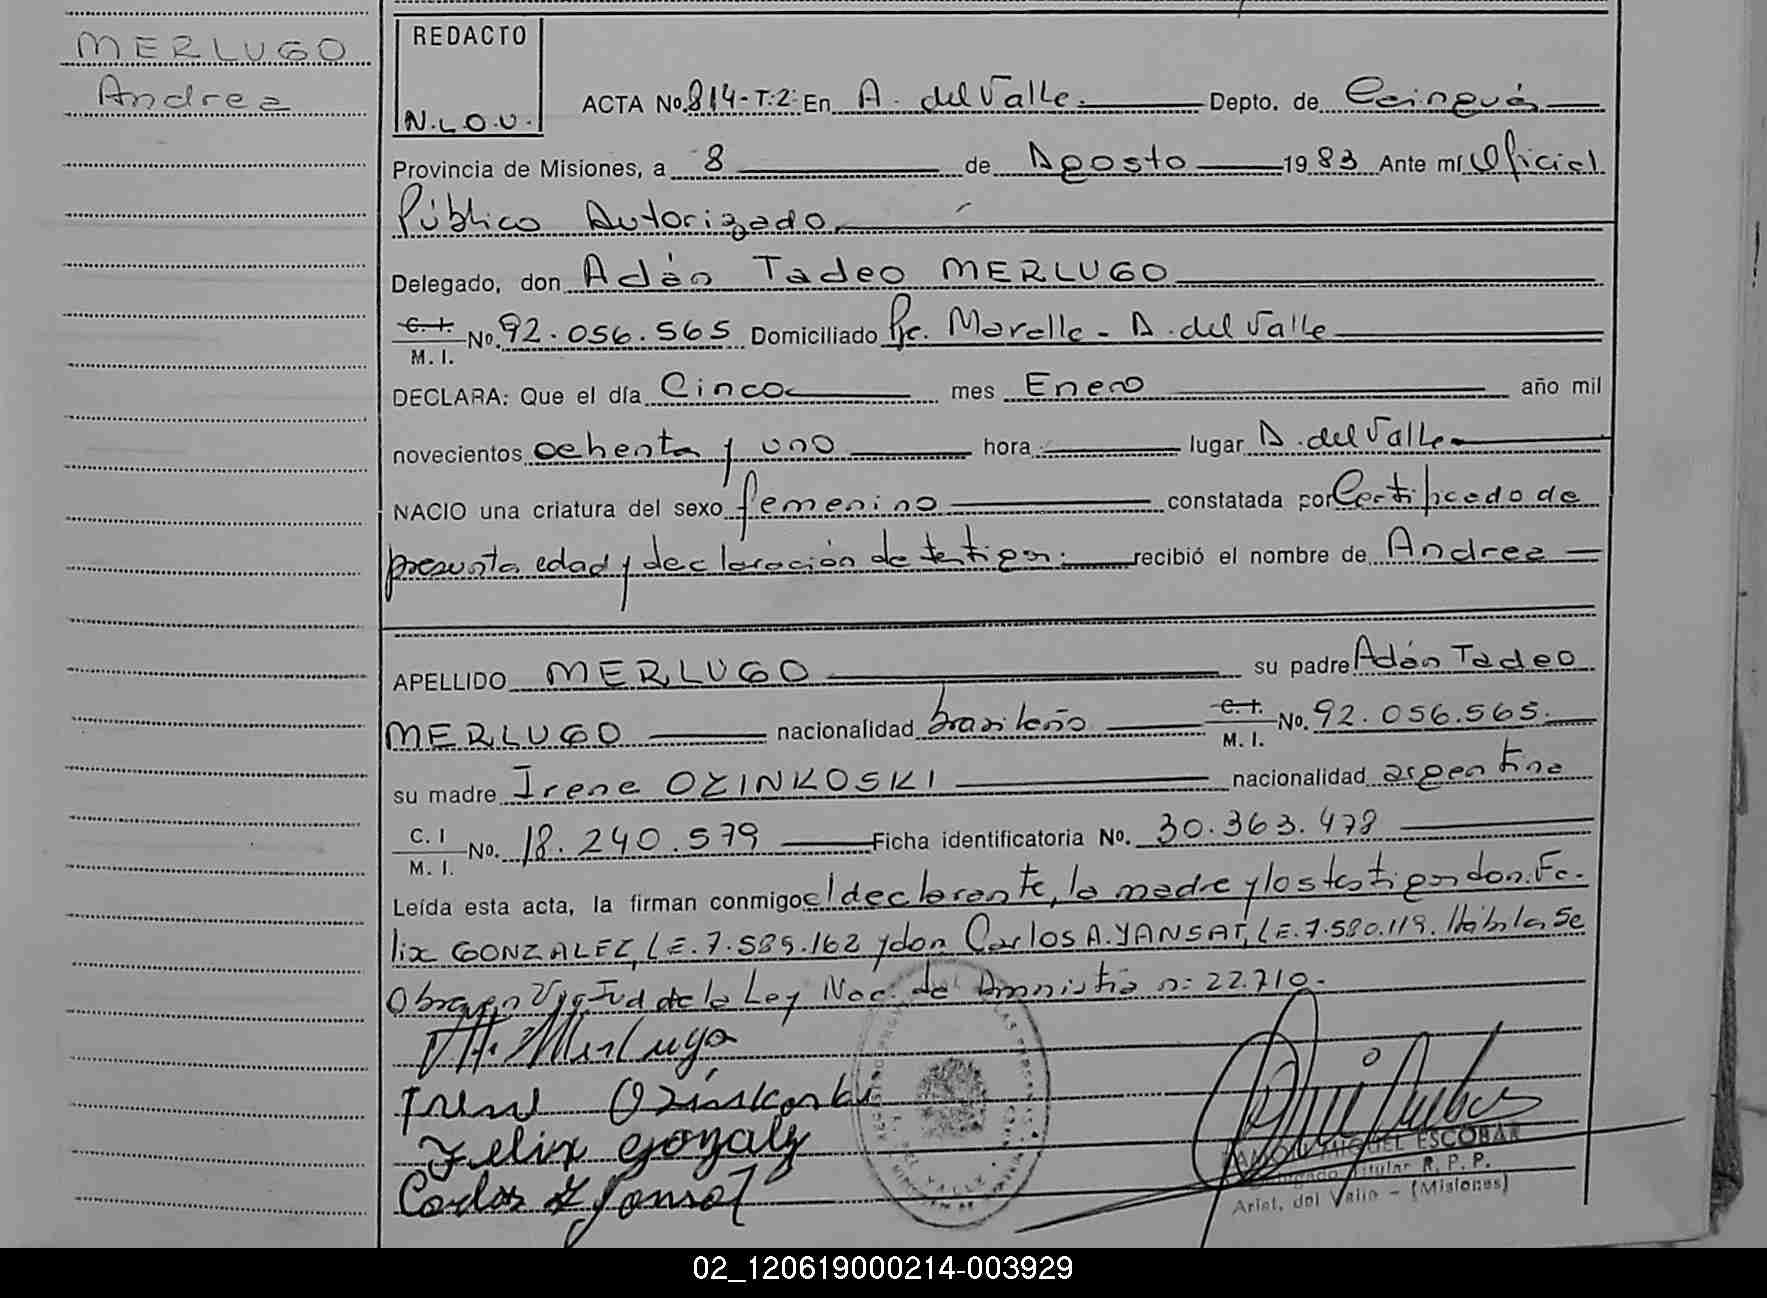 MERLUGO
Andrea
REDACTO
N.L.O.V.
ACTA No. 814-T:2: En A. del Valle. Depto. de Cainguás
Provincia de Misiones, a 8 de Agosto 1983 Ante mí Oficial
Público Autorizado
Delegado, don Adán Tadeo MERLUGO
C. I. No. 92.056.565 Domiciliado Pje. Morelle - A. del Valle
M. I.
DECLARA: Que el día Cinco mes Enero año mil
novecientos ochenta y uno hora lugar A. del Valle
NACIO una criatura del sexo femenino constatada por Certificado de
presunta edad y declaración de testigos. recibió el nombre de Andrea
APELLIDO MERLUGO su padre Adán Tadeo
MERLUGO nacionalidad brasileño C. I. No. 92.056.565.
M. I.
su madre Irene OZINKOSKI nacionalidad argentina
C. I No. 18.240.579 Ficha identificatoria No. 30.363.478
M. I.
Leída esta acta, la firman conmigo el declarante, la madre y los testigos don. Fe-
lix GONZALEZ, L E. 7.585.162 y don Carlos A. YANSAT, L E. 7.580.119. Habla Se
Obra en Virtud de la Ley Nac. de Amnistía n: 22.710.
A. Merlugo
Irene Ozinkoski
Felix Gonzalez
Carlos A Yansat
RAMON MIGUEL ESCOBAR
Titular R. P. P.
Arist. del Valle - (Misiones)
02_120619000214-003929